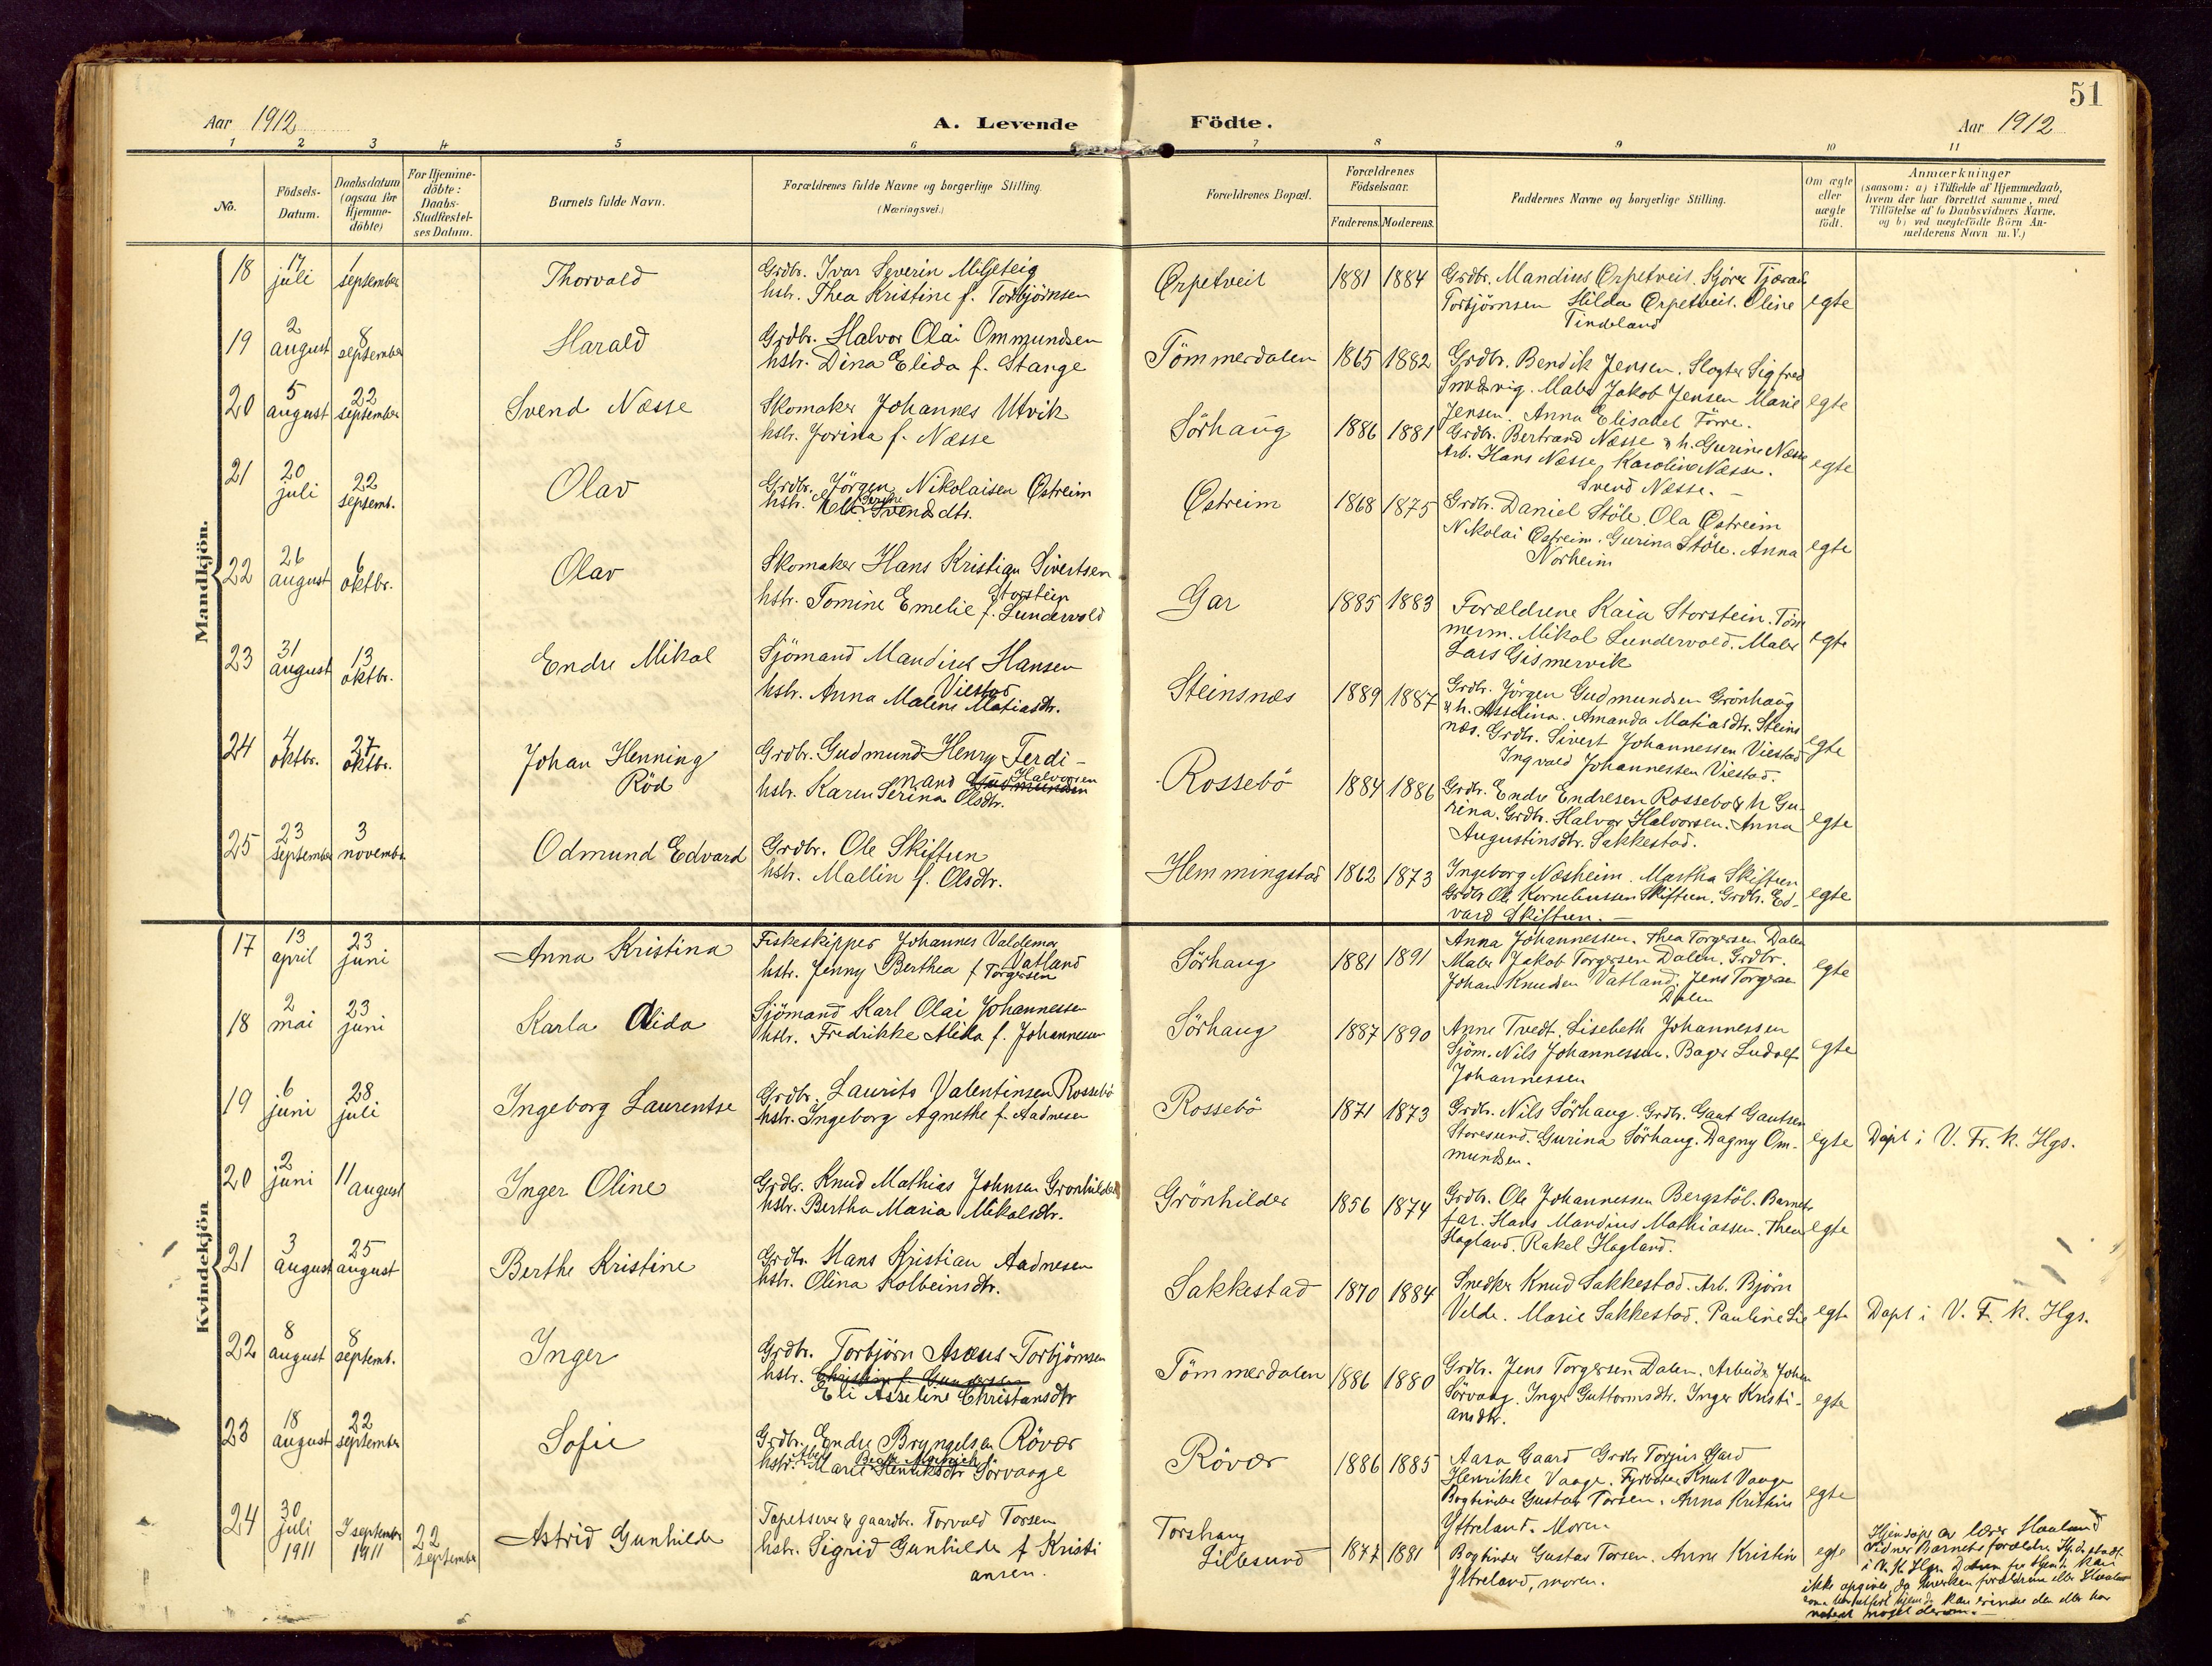 51
Aar 1912
A. Levende Födte.
Aar 1912
1 2 3 4 5 6 7 8 9 10 11
No.
Födsels-Datum.
Daabsdatum (ogsaa for Hjemme-döbte)
For Hjemme-döbte: Daabs-Stadfæstel-ses Datum.
Barnets fulde Navn.
Forældrenes fulde Navne og borgerlige Stilling.
(Næringsvei.)
Forældrenes Bopæl.
Forældrenes Födselsaar.
Faderens. Moderens.
Faddernes Navne og borgerlige Stilling.
Om ægte eller uægte födt.
Anmærkninger
(saasom: a) i Tilfælde af Hjemmedaab,
hvem der har forrettet samme, med
Tilföielse af to Daabsvidners Navne,
og b) ved uægtefödte Börn An-
melderens Navn m. V.)
Mandkjön.
18 17 juli 1 september Thorvald
Grdbr. Ivar Severin Miljeteig
hstr. Thea Kristine f. Torbjörnsen
Ørpetveit 1881 1884
Grdbr. Mandius Ørpetveit. Sjöm. Tjæran
Torbjörnsen Hilda Ørpetveit. Oline
Tindeland
egte
19 2 august 8 september Harald
Grdbr. Halvor Olai Ommundsen
hstr. Dina Elida f. Stange
Tömmerdalen 1865 1882
Grdbr. Bendik Jensen. Slagter Sigfred
Smedvig. Maler Jakob Jensen Marie
Jensen. Anna Elisabet Förre.
egte
20 5 august 22 september Svend Næsse
Skomaker Johannes Utvik
hstr. Jorina f. Næsse
Sörhaug 1886 1881
Grdbr. Bertrand Næsse & h. Gurine Næsse
Arb. Hans Næsse, Karoline Næsse.
Svend Næsse. –
egte
21 20 juli 22 septemb. Olav
Grdbr. Jörgen Nikolaisen Østreim
hstr. Svendsdtr.
Østreim 1868 1875
Grdbr. Daniel Stöle. Ola Østreim
Nikolai Østreim. Gurina Stöle. Anna
Norheim
egte
22 26 august 6 oktbr. Olav
Skomaker Hans Kristian Sivertsen
Storstein
hstr. Tomine Emelie f. Lundervold
Gar 1885 1883
Forældrene Kaia Storstein. Töm
merm. Mikal Lundervold. Maler
Lars Gismervik
egte
23 31 august 13 oktbr. Endre Mikal
Sjömand Mandius Hansen
Viestad
hstr. Anna Malene Matiasdtr.
Steinsnæs 1889 1887
Grdbr. Jörgen Gudmundsen Grönhaug
& h. Asselina. Amanda Matiasdtr. Steins
næs. Grdbr. Sivert Johannessen Viestad
Ingvald Johannessen Viestad.
egte
24 4 oktbr. 27 oktbr. Johan Henning
Röd
Grdbr. Gudmund Henry Ferdi-
nand Gudmundsen Halvorsen
hstr. Karen Serina Olsdtr.
Rossebö 1884 1886
Grdbr. Endre Endresen Rossebö & h Gu-
rina. Grdbr. Halvor Halvorsen. Anna
Augustinsdtr. Sakkestad.
egte
25 23 september 3 november Odmund Edvard
Grdbr. Ole Skiftun
hstr. Mallin f. Olsdtr.
Hemmingstad 1862 1873
Ingeborg Næsheim. Martha Skiftun
Grdbr Ole Korneliussen Skiftun. Grdbr. Ed-
vard Skiftun. –
egte
Kvindekjön
17 13 april 23 juni Anna Kristina
Fiskeskipper Johannes Valdemar
Vatland
hstr. Jenny Berthea f Torgersen
Sörhaug 1881 1891
Anna Johannessen. Thea Torgersen Dalen
Maler Jakob Torgersen Dalen. Grdbr.
Johan Knudsen Vatland. Jens Torgersen
Dalen
egte
18 2 mai 23 juni Karla Alida
Sjömand Karl Olai Johannessen
hstr. Fredrikke Alida f. Johannessen
Sörhaug 1887 1890
Anne Tvedt. Lisebeth Johannessen
Sjöm. Nils Johannessen. Bager Ludolf
Johannessen
egte
19 6 juni 28 juli Ingeborg Laurentse
Grdbr. Laurits Valentinsen Rossebö
hstr. Ingeborg Agnethe f. Aadnesen
Rossebö 1871 1873
Grdbr. Nils Sörhaug. Grdbr. Gaut Gautsen
Storesund. Gurina Sörhaug. Dagny Om-
mundsen.
egte Döpt i V. Fr. k. Hgs.
20 2 juni 11 august Inger Oline
Grdbr. Knud Mathias Johnsen Grönhilder
hstr. Bertha Maria Mikalsdtr.
Grönhilder 1856 1874
Grdbr. Ole Johannessen Bergstöl. Barnets
far. Hans Mandius Mathiassen. Thea
Hagland. Rakel Hagland.
egte
21 3 august 25 august Berthe Kristine
Grdbr. Hans Kristian Aadnesen
hstr. Olina Kolbeinsdtr.
Sakkestad 1870 1884
Snedker Knud Sakkestad. Arb. Björn
Velde. Marie Sakkestad. Pauline Lie
egte Döpt i V. F. k. Hgs.
22 8 august 8 septemb. Inger
Grdbr. Torbjörn Asæus Torbjörnsen
hstr. Christine f. Gundersen
Eli Asseline Christansdtr
Tömmerdalen 1886 1880
Grdbr. Jens Torgersen Dalen. Arbeider Johan
Sörvaag. Inger Guttormsdtr. Inger Kristi-
ansdtr.
egte
23 18 august 22 september Sofie
Grdbr. Endre Bryngelsen Rövær
hstr. Marie Henriksdtr Sörvaage
Rövær 1886 1885
Aasa Gaard Grdbr Torjus Gard
Henrikke Vaage. Fyrböter Knut Vaage
Bogbinder Gustav Torsen. Anna Kristine
Yttreland. Moren.
egte
24 30 juli 1911 3 september 1911 22 september Astrid Gunhilde
Tapetserer & gaardbr. Torvald Torsen
hstr. Sigrid Gunhilde f Kristi
ansen.
Torshaug
Lillesund 1877 1881
Bogbinder Gustav Torsen. Anne Kristin
Yttreland, moren.
egte
Hjemdöpt av lærer Haaland
Vidner Barnets forældre. Hj.d. stadf.
i V. Fr. K. Hgs. Datum for Hjemd. kan
ikke opgives, da hverken forældrene eller Haaland
som har utfört hjemd. kan erindre den eller har
notert noget derom. –